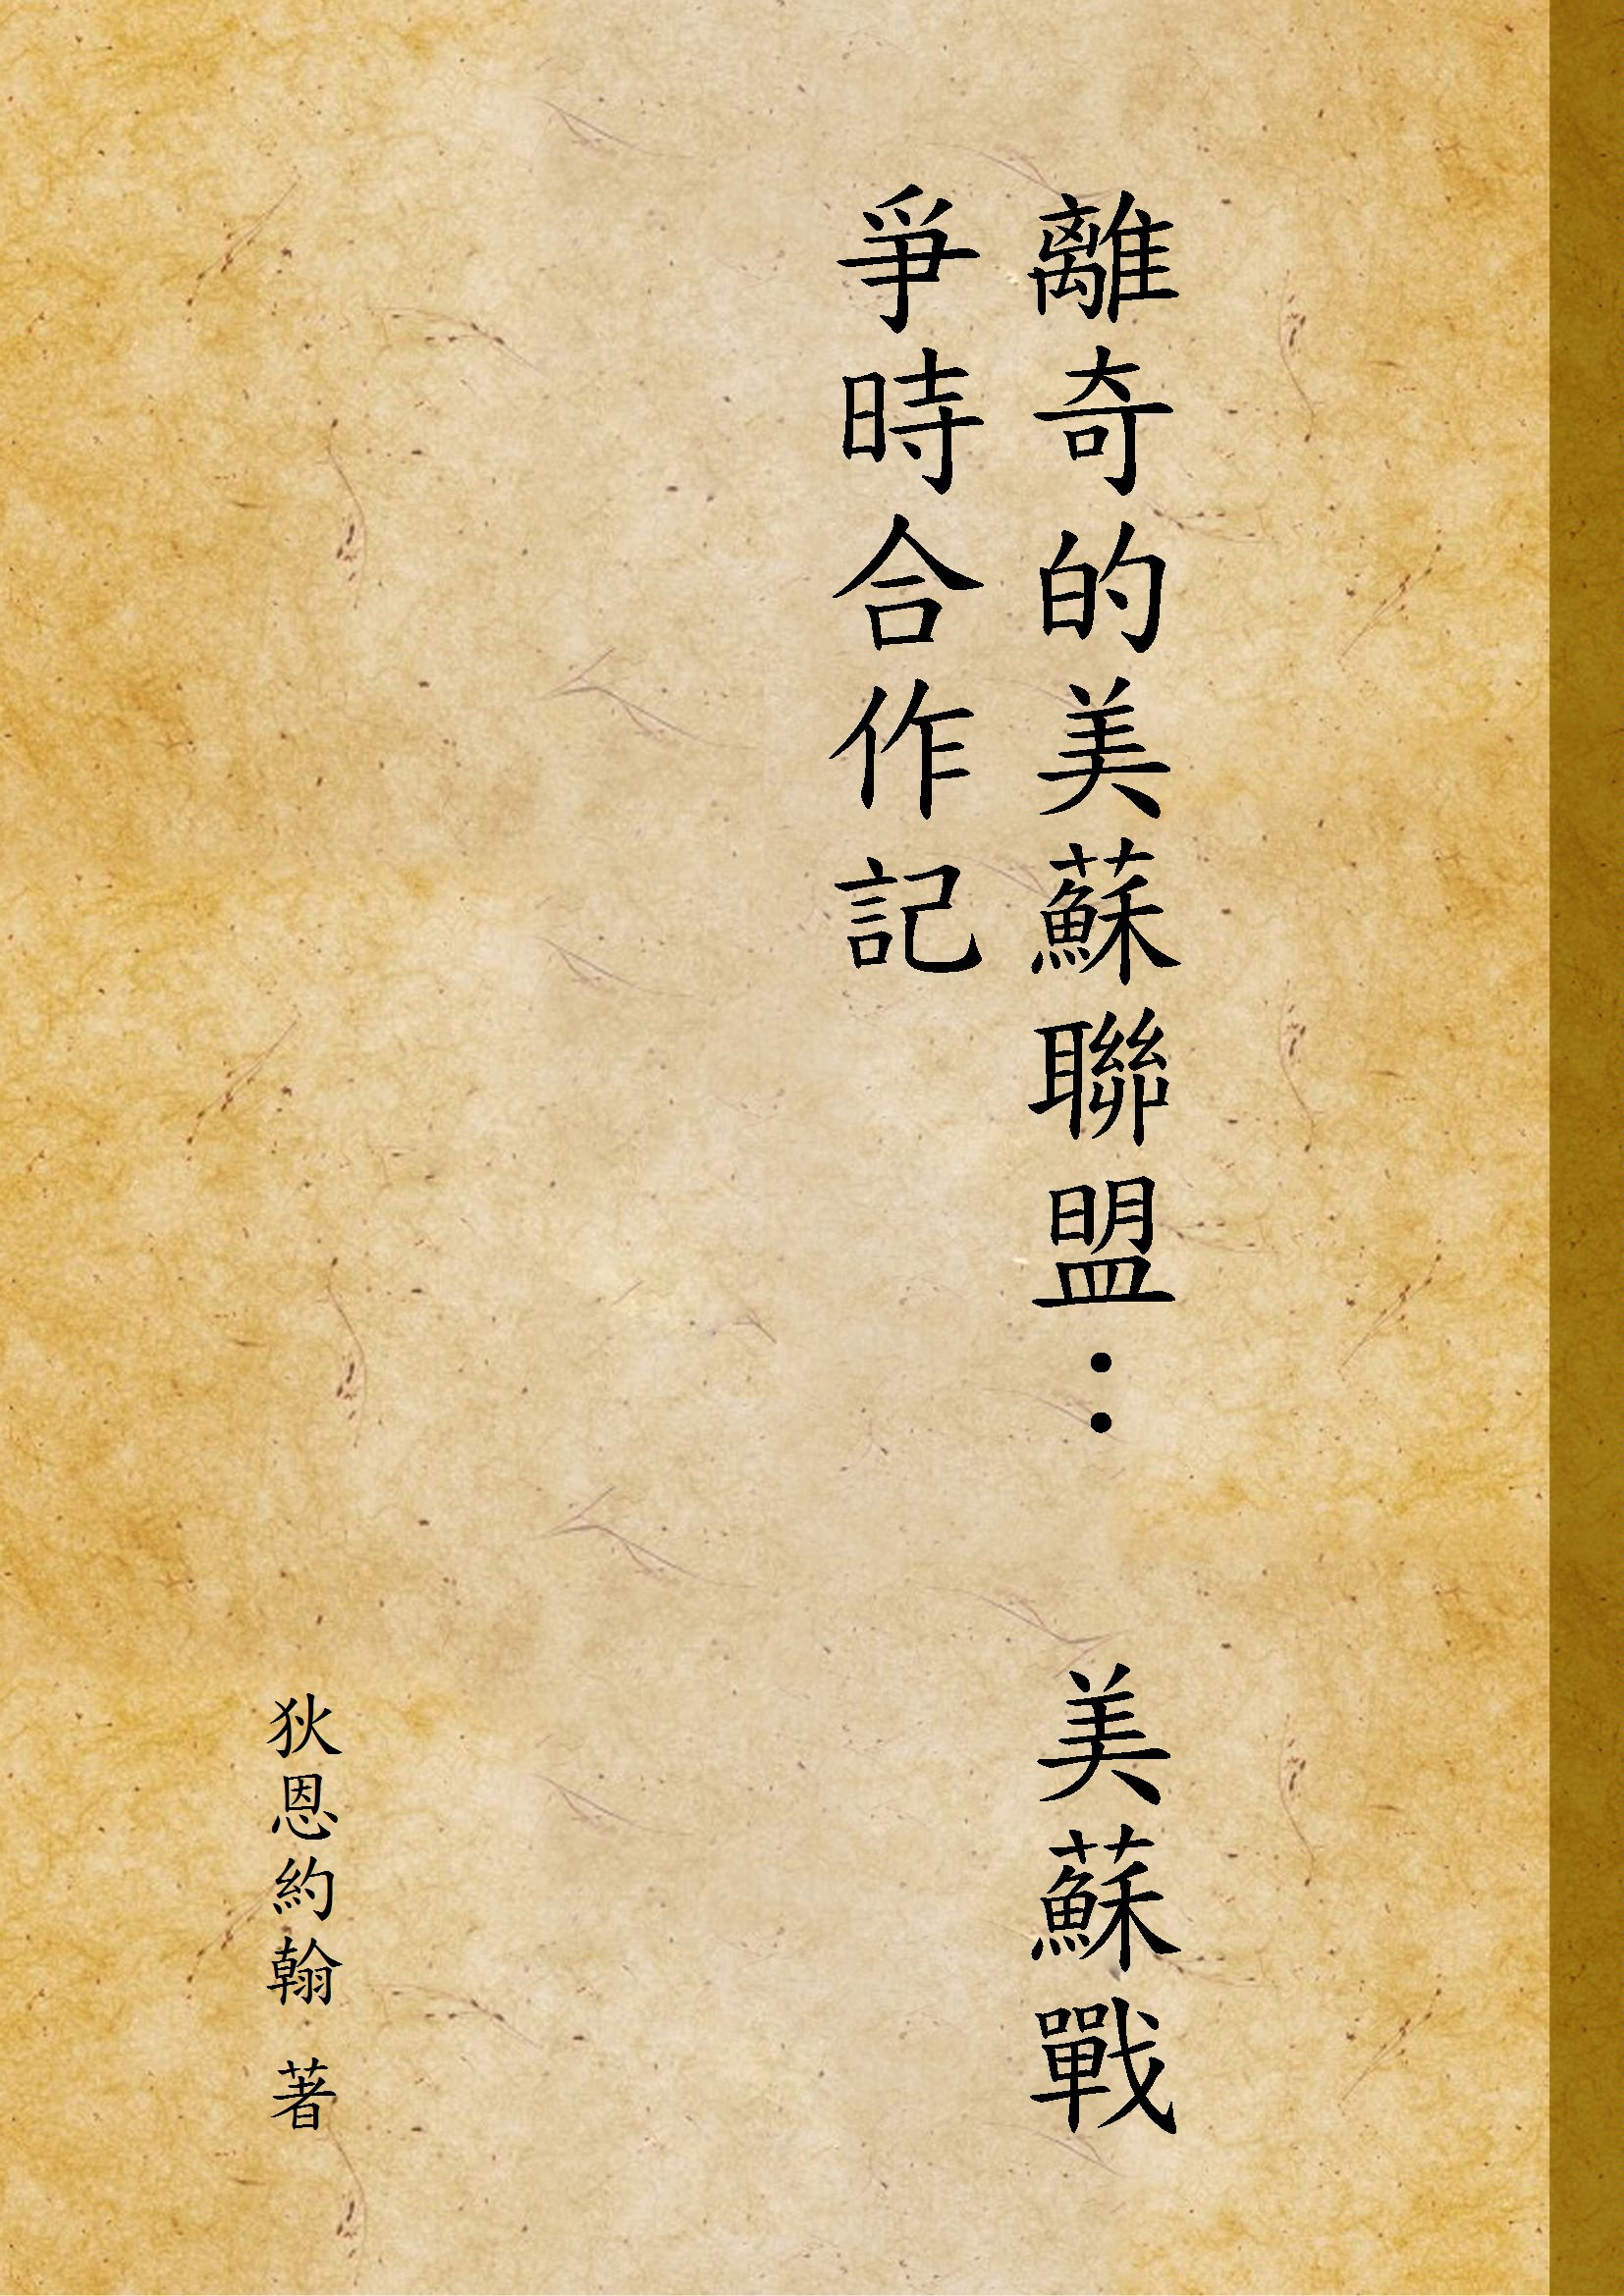 離奇的美蘇聯盟：　美蘇戰
爭時合作記
狄恩約翰 著